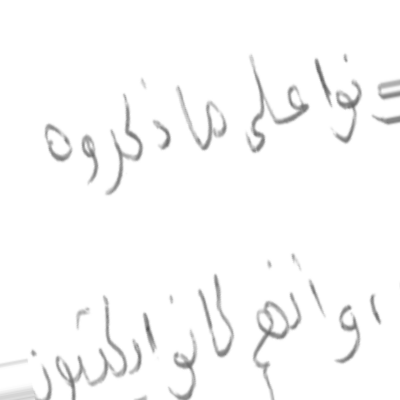 نوا على ما ذكروه
وانهم كانوا يكتبون